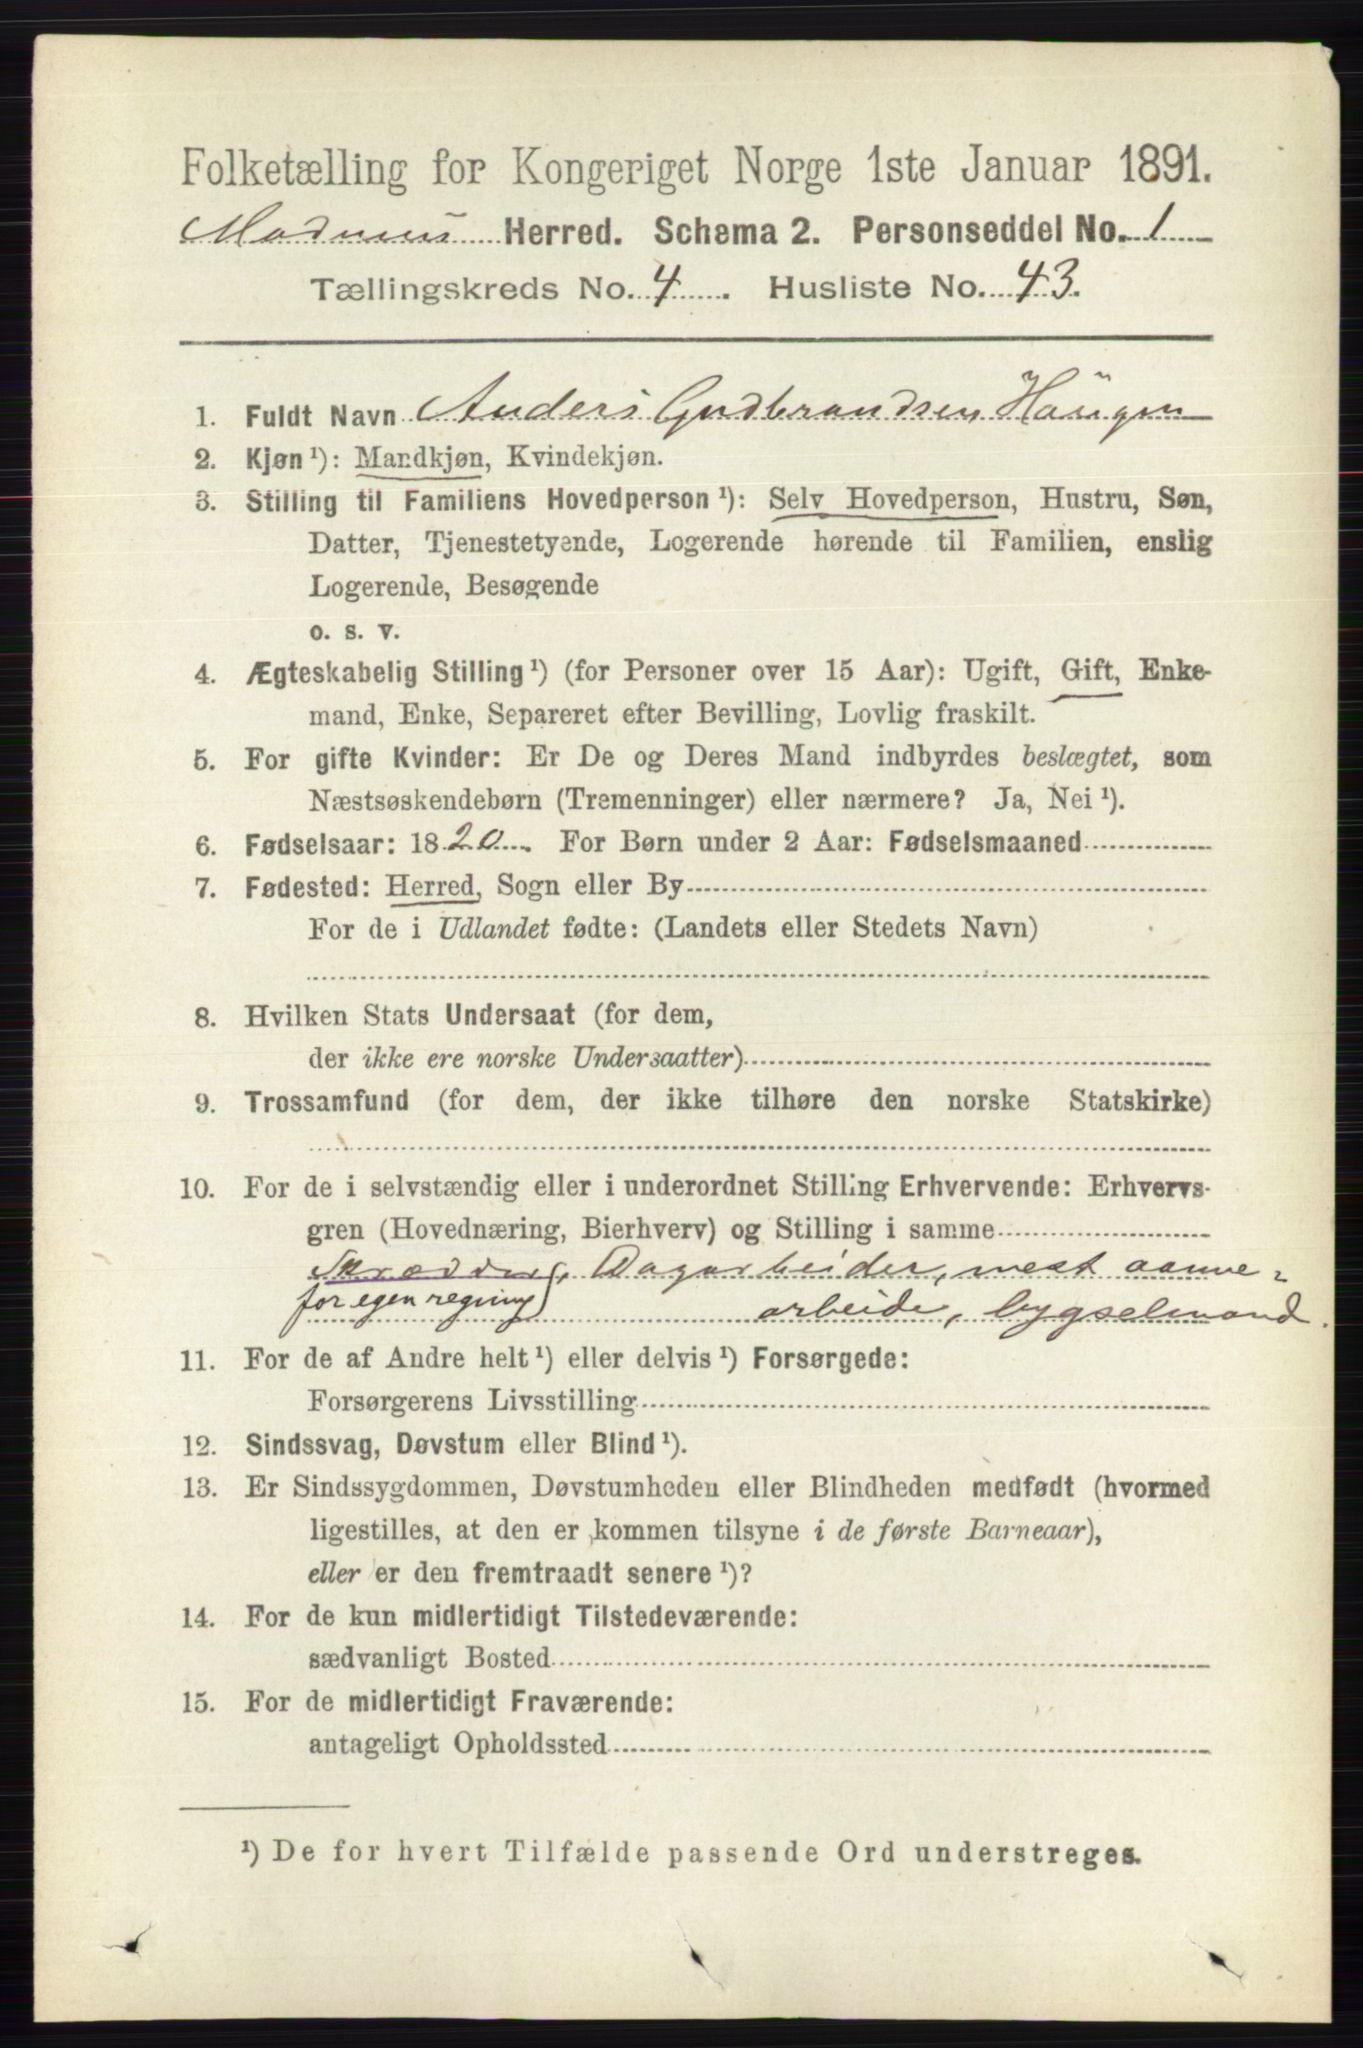 Folketælling for Kongeriget Norge 1ste Januar 1891.
Modums Herred. Schema 2. Personseddel No. 1
Tællingskreds No. 4. Husliste No. 43.
1. Fuldt Navn Anders Gudbrandsen Haugen
2. Kjøn¹): Mandkjøn, Kvindekjøn.
3. Stilling til Familiens Hovedperson¹): Selv Hovedperson, Hustru, Søn,
Datter, Tjenestetyende, Logerende hørende til Familien, enslig
Logerende, Besøgende
o. s. v.
4. Ægteskabelig Stilling¹) (for Personer over 15 Aar): Ugift, Gift, Enke-
mand, Enke, Separeret efter Bevilling, Lovlig fraskilt.
5. For gifte Kvinder: Er De og Deres Mand indbyrdes beslægtet, som
Næstsøskendebørn (Tremenninger) eller nærmere? Ja, Nei¹).
6. Fødselsaar: 1820. For Børn under 2 Aar: Fødselsmaaned
7. Fødested: Herred, Sogn eller By
For de i Udlandet fødte: (Landets eller Stedets Navn)
8. Hvilken Stats Undersaat (for dem,
der ikke ere norske Undersaatter)
9. Trossamfund (for dem, der ikke tilhøre den norske Statskirke)
10. For de i selvstændig eller i underordnet Stilling Erhvervende: Erhvervs-
gren (Hovednæring, Bierhverv) og Stilling i samme
Skrædder, Dagarbeider, mest aanne-
for egen regning) arbeide, bygselmand.
11. For de af Andre helt¹) eller delvis¹) Forsørgede:
Forsørgerens Livsstilling
12. Sindssvag, Døvstum eller Blind¹).
13. Er Sindssygdommen, Døvstumheden eller Blindheden medfødt (hvormed
ligestilles, at den er kommen tilsyne i de første Barneaar),
eller er den fremtraadt senere¹)?
14. For de kun midlertidigt Tilstedeværende:
sædvanligt Bosted
15. For de midlertidigt Fraværende:
antageligt Opholdssted
¹) De for hvert Tilfælde passende Ord understreges.